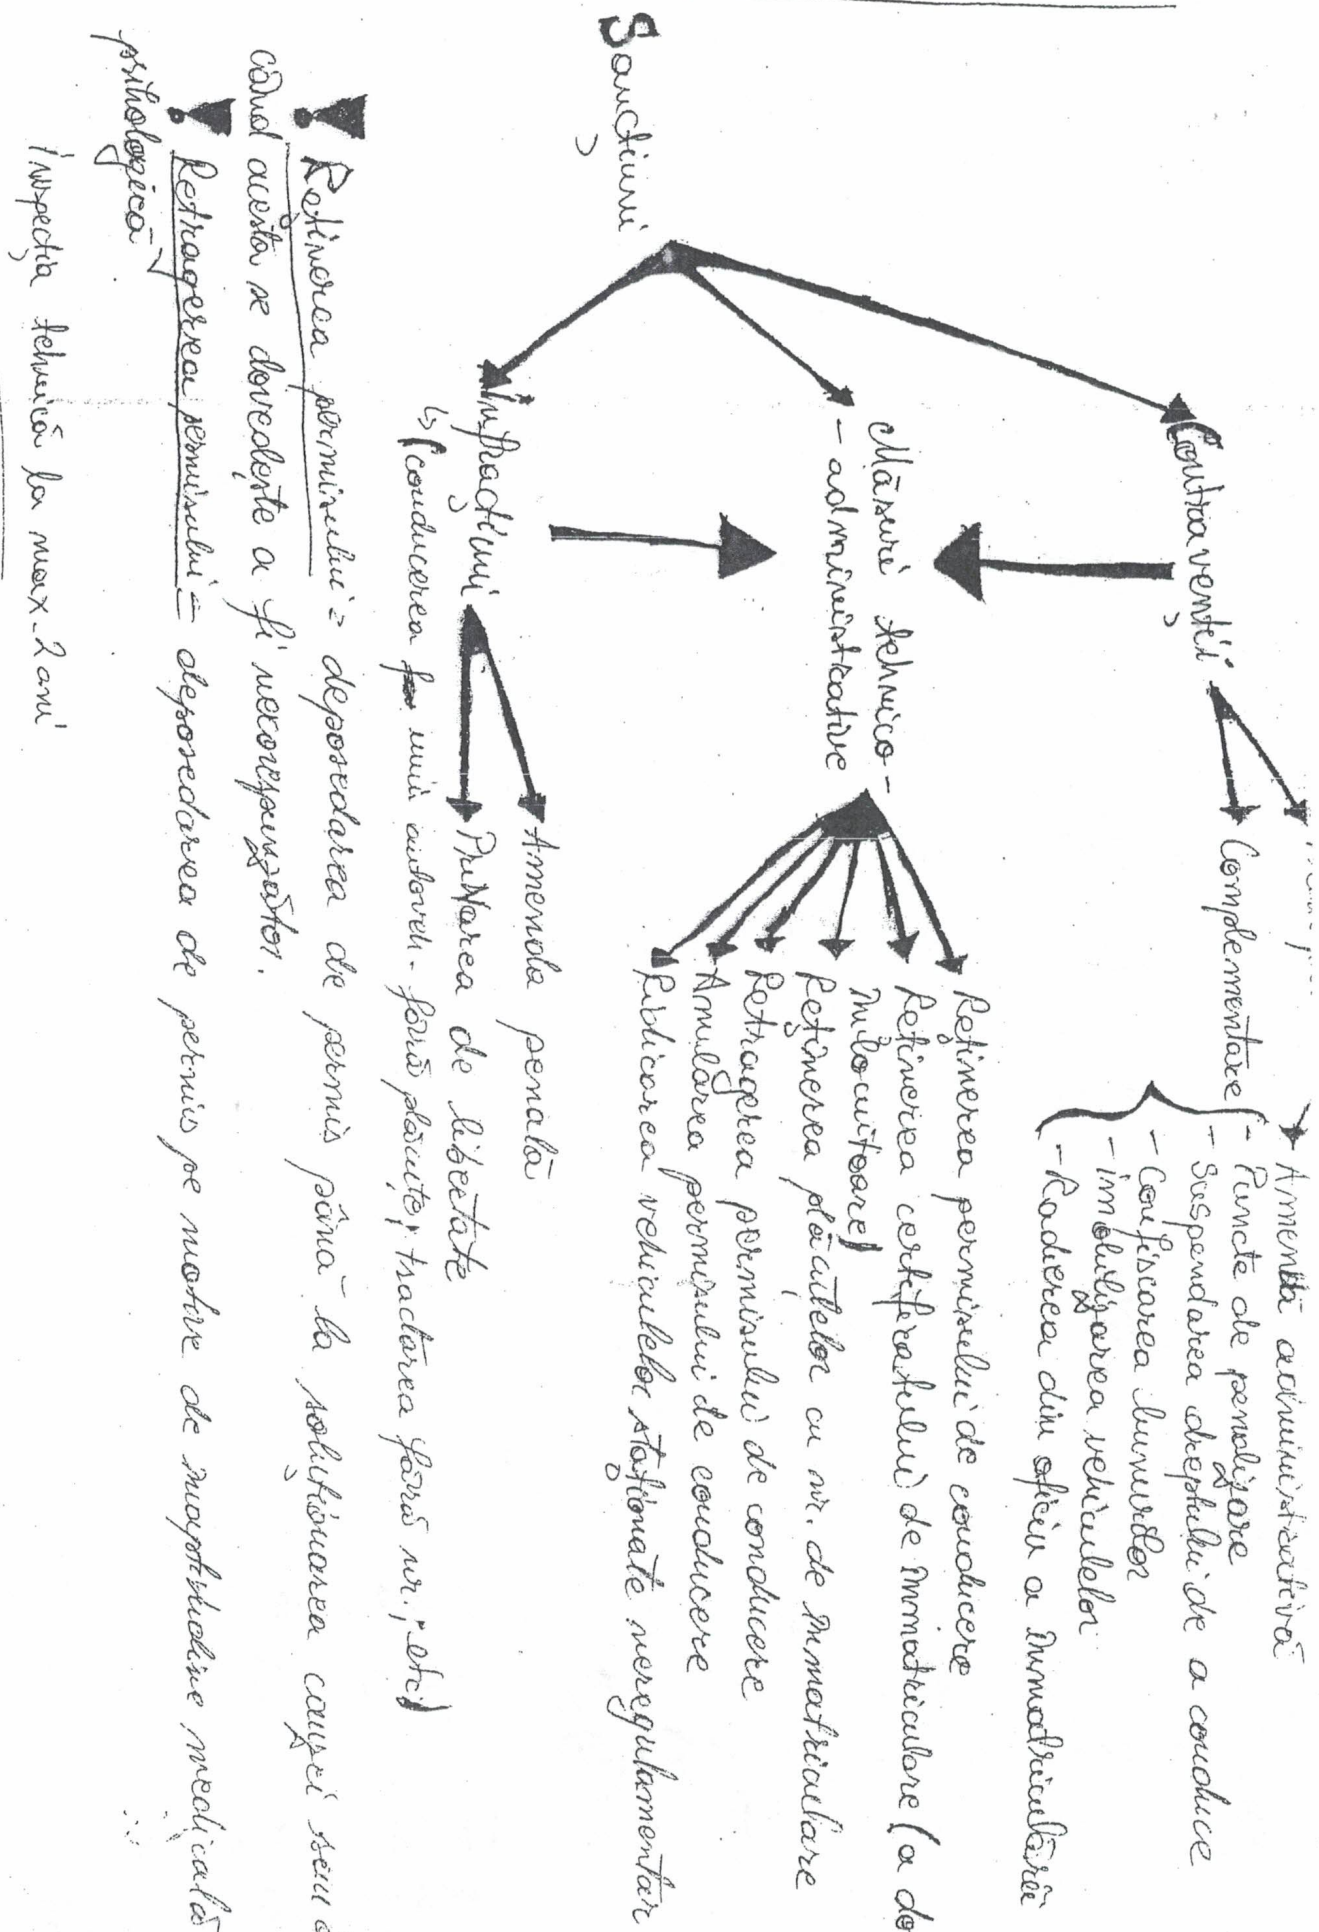 → Amendă administrativă
Contravenții
Complementare
- Puncte de penalizare
- Suspendarea dreptului de a conduce
- Confiscarea bunurilor
- imobilizarea vehiculelor
- Radierea din oficiu a înmatriculării
Sancțiuni
Măsuri tehnico-
- administrative
Reținerea permisului de conducere
Reținerea certificatului de înmatriculare (a do
înlocuitoare)
Reținerea plăcuțelor cu nr. de înmatriculare
Retragerea permisului de conducere
Anularea permisului de conducere
Ridicarea vehiculelor staționate neregulamentar
Infracțiuni
Amenda penală
Privarea de libertate
↳ (conducerea unui autoveh. fără plăcuțe; tractarea fără nr.; etc)
! Reținerea permisului = deposedarea de permis până la soluționarea cauzei sau
când acesta se dovedește a fi necorespunzător.
! Retragerea permisului = deposedarea de permis pe motive de inaptitudine medicală
psihologică
Inspecția tehnică la max. 2 ani